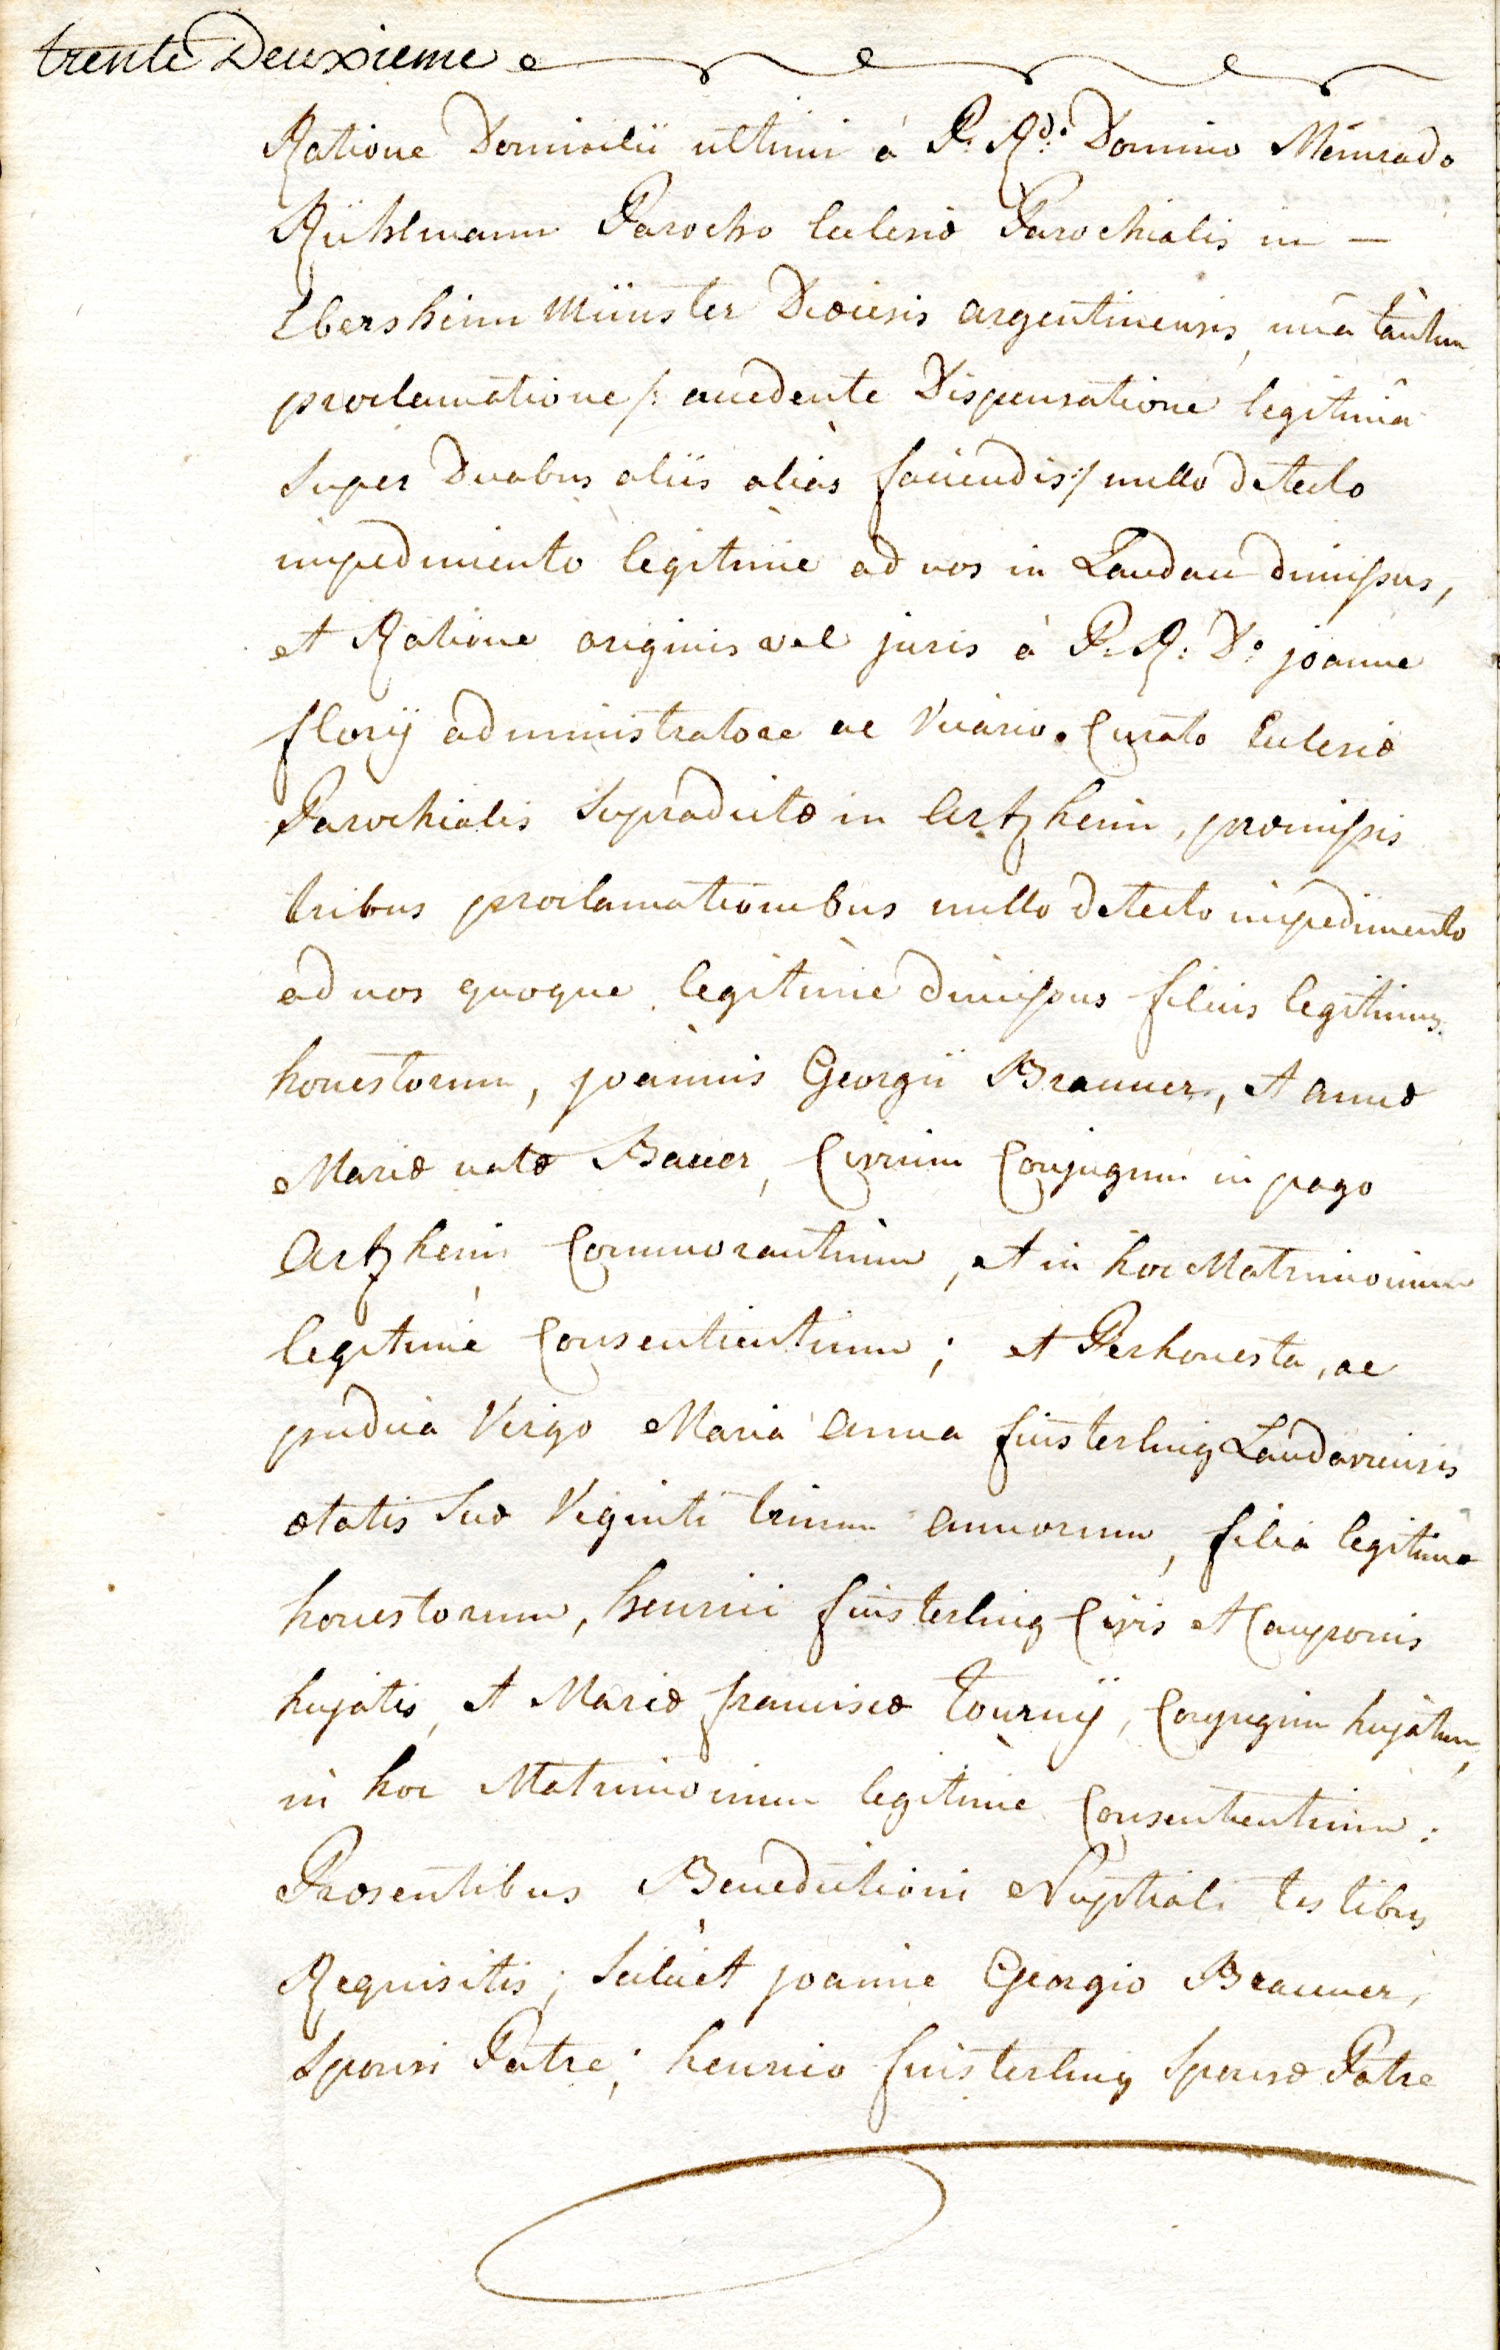 trente Deuxieme
Ratione Domicilii ultimi à P. Rdo. Domino Meinrado
Rühlmann Parocho Ecclesiæ Parochialis in —
Ebersheim Münster Diœcesis argentinensis, unâ tantum
proclamatione /: accedente Dispensatione legitimâ
super Duabus aliis aliàs faciendis :/ nullo detecto
impedimento legitimè ad nos in Landau dimissus,
et Ratione originis vel juris à P. R: Do. joanne
flory administratore ac Vicario Curato Ecclesiæ
Parochialis supradictæ in Artzheim, præmissis
tribus proclamationibus nullo detecto impedimento
ad nos quoque legitimè dimissus filius legitimus
honestorum, joannis Georgii Brauner, et annæ
Mariæ natæ Bauer, Civium Conjugum in pago
Artzheim Commorantium, et in hoc Matrimonium
legitimè Consentientium; et Perhonesta, ac
pudica Virgo Maria Anna finsterling Landaviensis
ætatis suæ Viginti trium annorum, filia legitima
honestorum, henrici finsterling Civis et Cauponis
hujatis, et Mariæ franciscæ Tourny, Conjugum hujatum,
in hoc Matrimonium legitimè Consentientium:
Præsentibus Benedictioni Nuptiali testibus
Requisitis; scilicèt joanne Georgio Brauner,
sponsi Patre; henrico finsterling sponsæ Patre